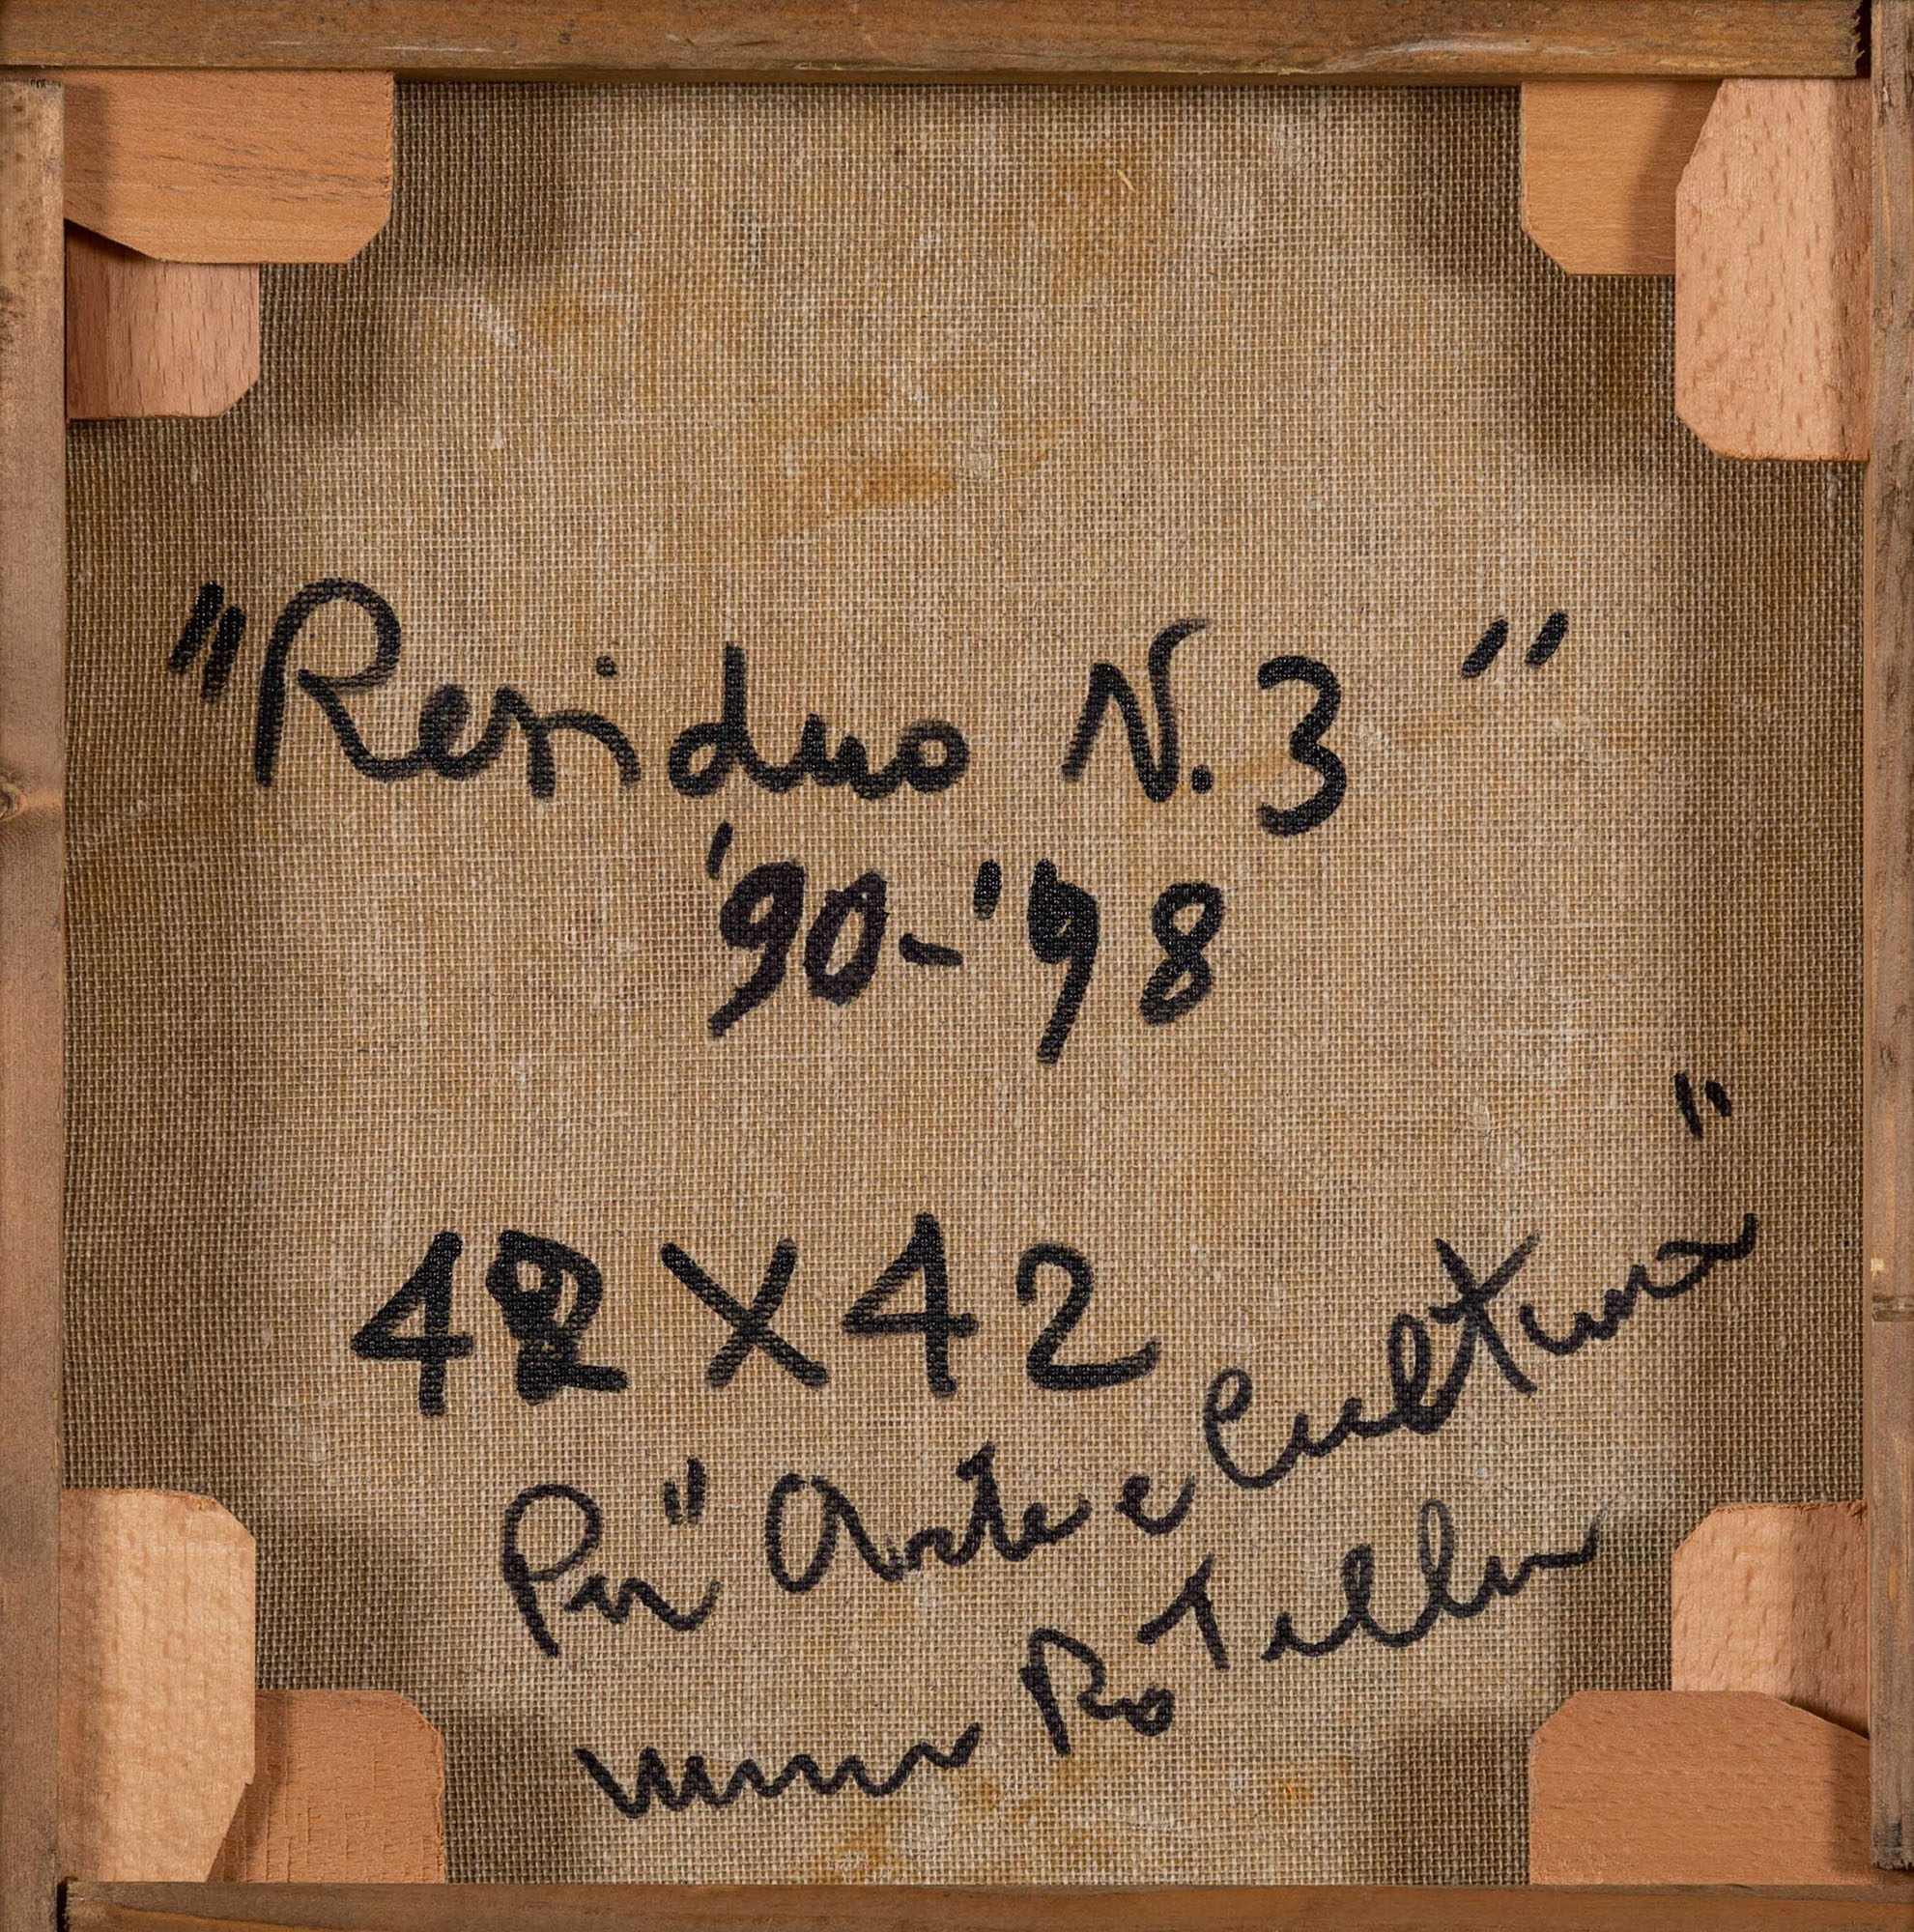 "Residuo N.3"
'90-'98
42 X 42
Per "Arte e Cultura"
Mimmo Rotella